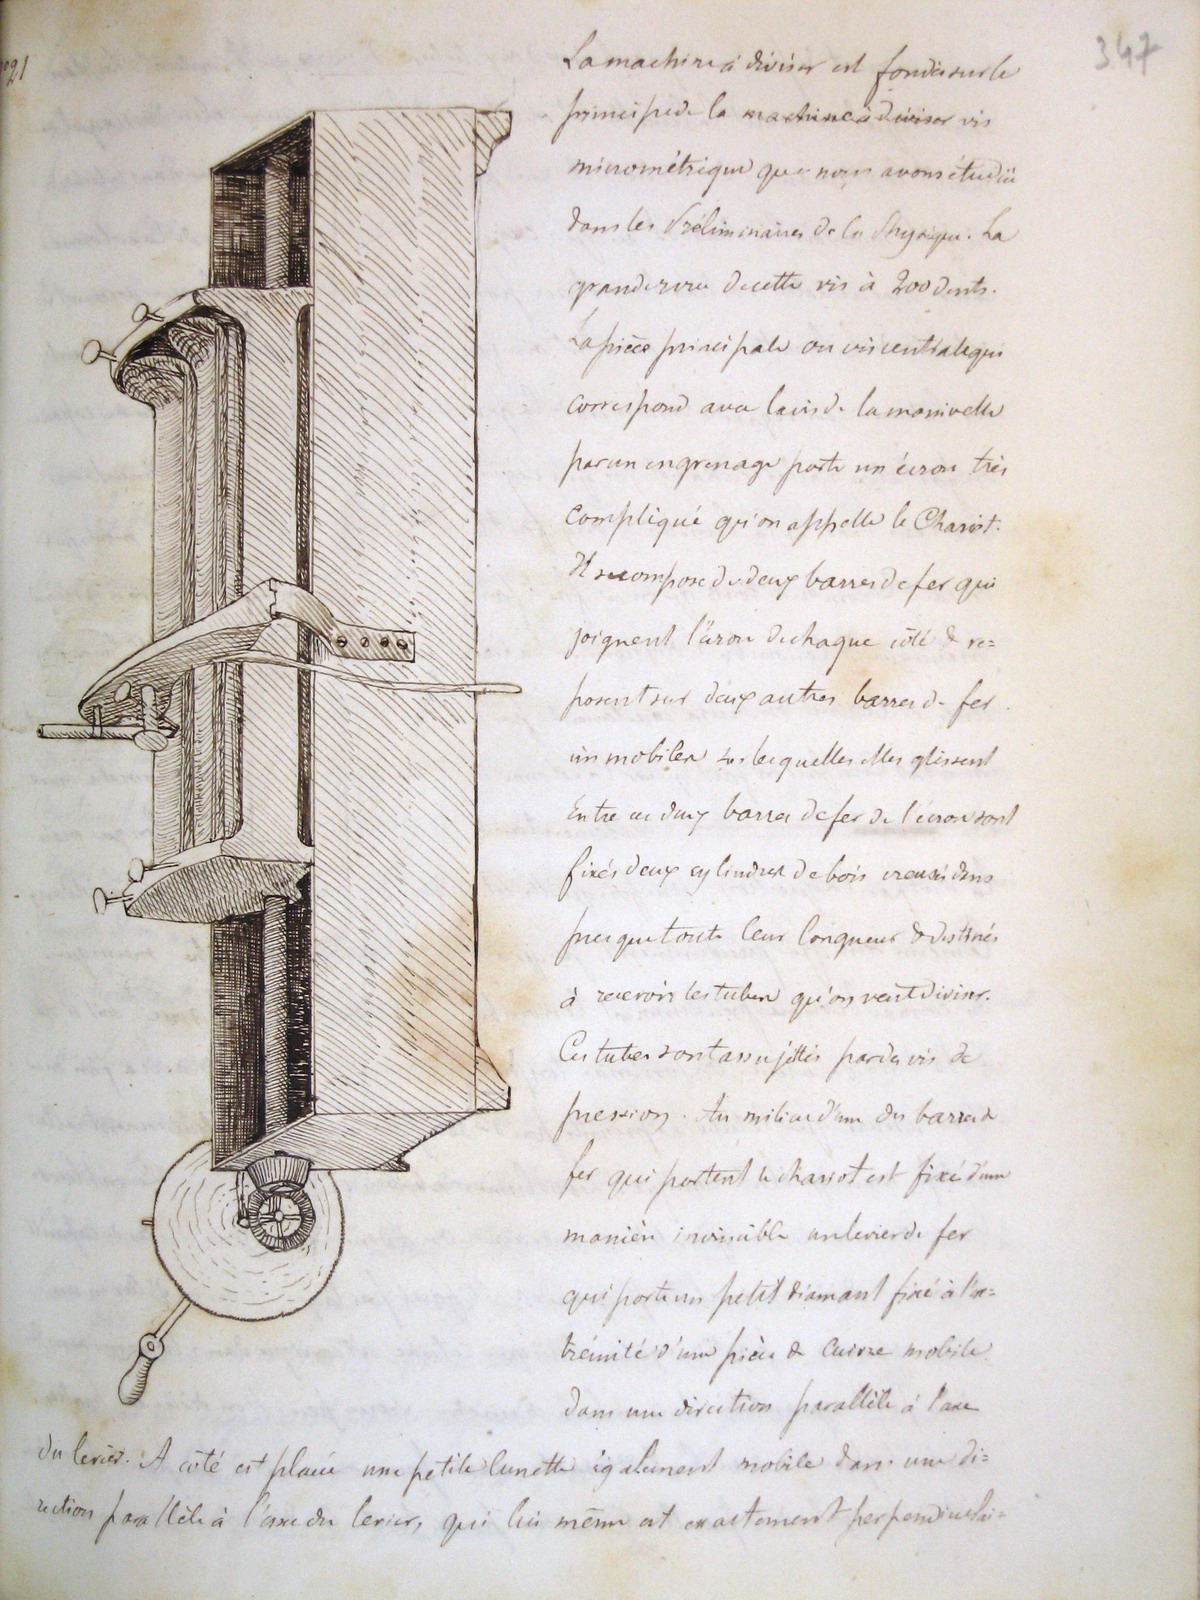 347
La machine à diviser est fondée sur le
principe de la machine à diviser vis
micrométrique que nous avons étudiée
dans les Préliminaires de la Physique. La
grande roue de cette vis à 200 dents.
La pièce principale ou vis centrale qui
correspond avec la vis de la manivelle
par un engrenage porte un écrou très
compliqué qu'on appelle le Chariot.
Il se compose de deux barres de fer qui
joignent l'écrou de chaque côté & re=
posent sur deux autres barres de fer
immobiles sur lesquelles elles glissent
Entre ces deux barres de fer de l'écrou sont
fixés deux cylindres de bois creusés dans
presque toute leur longueur & destinés
à recevoir les tubes qu'on veut diviser.
Ces tubes sont assujettis par des vis de
pression. Au milieu d'une des barres de
fer qui portent le chariot est fixé d'une
manière invisible un levier de fer
qui porte un petit diamant fixé à l'ex=
trémité d'une pièce de cuivre mobile
dans une direction parallèle à l'axe
du levier. A côté est placée une petite lunette également mobile dans une di=
rection parallèle à l'axe du levier, qui lui même est exactement perpendiculai=